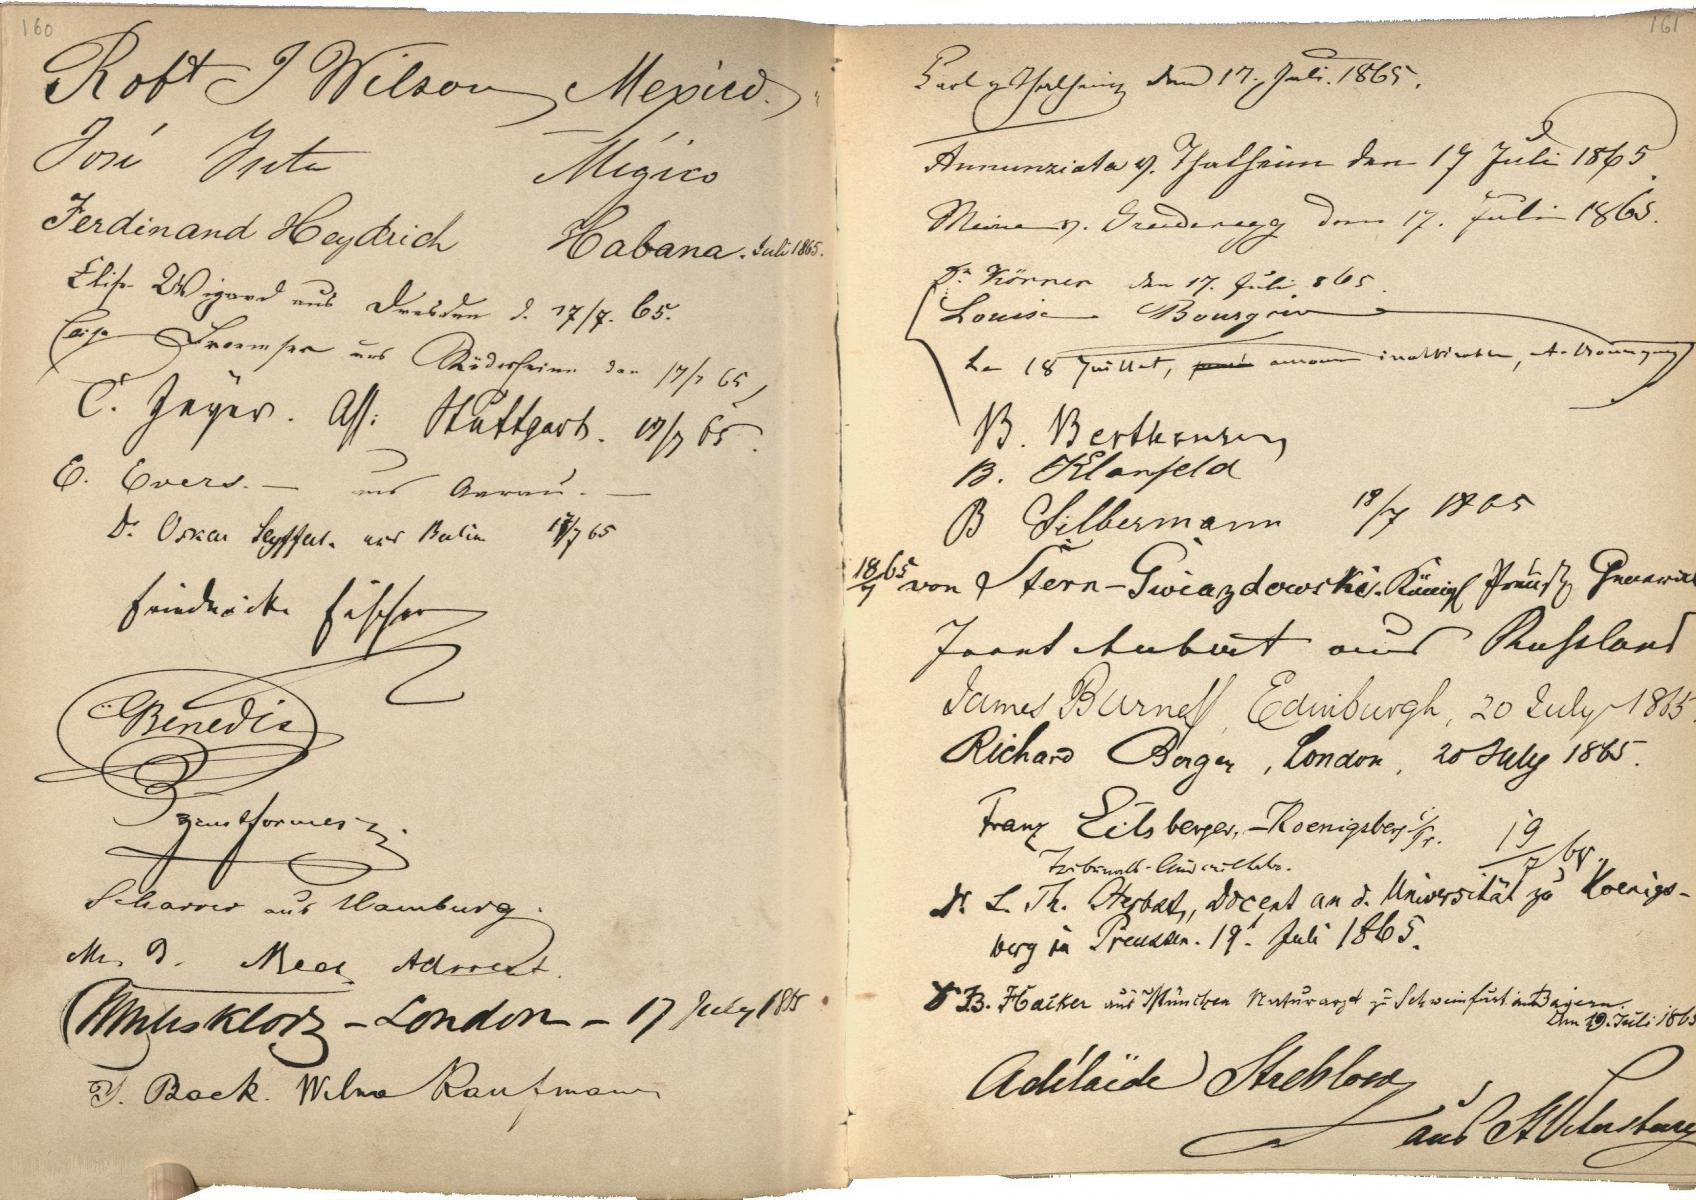 160
Robt J Wilson Mexico.
José Méjico
Ferdinand Heydrich Habana. Juli 1865.
Elise Wigand aus Dresden d. 17/7. 65.
aus Rüdesheim den 17/7 65
C. Jäger. Ass: Stuttgart. 17/7 65.
E. Evers. — aus Aarau. —
Dr Oskar Seyffert. aus Berlin 17/7 65
Friedericke Fischer
Benedix
Scharrer aus Hamburg.
Advocat.
London – 17 July 1865
Back. Wilma Kaufmann
161
Carl v. Thalheim den 17. Juli. 1865.
Annunziata v. Thalheim den 17 Juli 1865.
v. den 17. Juli 1865.
Dr Körner den 17. Juli 865.
Louise Bourgoin
Le 18 Juillet,
B. Berthensen
B. Klanfeld
B Silbermann 18/7 1865
18/7 65 von Stern-Gwiazdowski. Königl Preuss General
Aubert aus Russland
James Burness Edinburgh, 20 July 1865.
Richard Berger, London, 20 July 1865.
Franz Eilsberger, – Koenigsberg i/Pr. 19/7 65.
Dr. L. Th. Herbst, Docent an d. Universität zu Koenigs-
berg in Preussen. 19. Juli 1865.
B. Hacker aus München Naturarzt zu Schweinfurt in Bayern.
Den 19. Juli 1865
Adélaïde Strehlow
aus St Petersburg